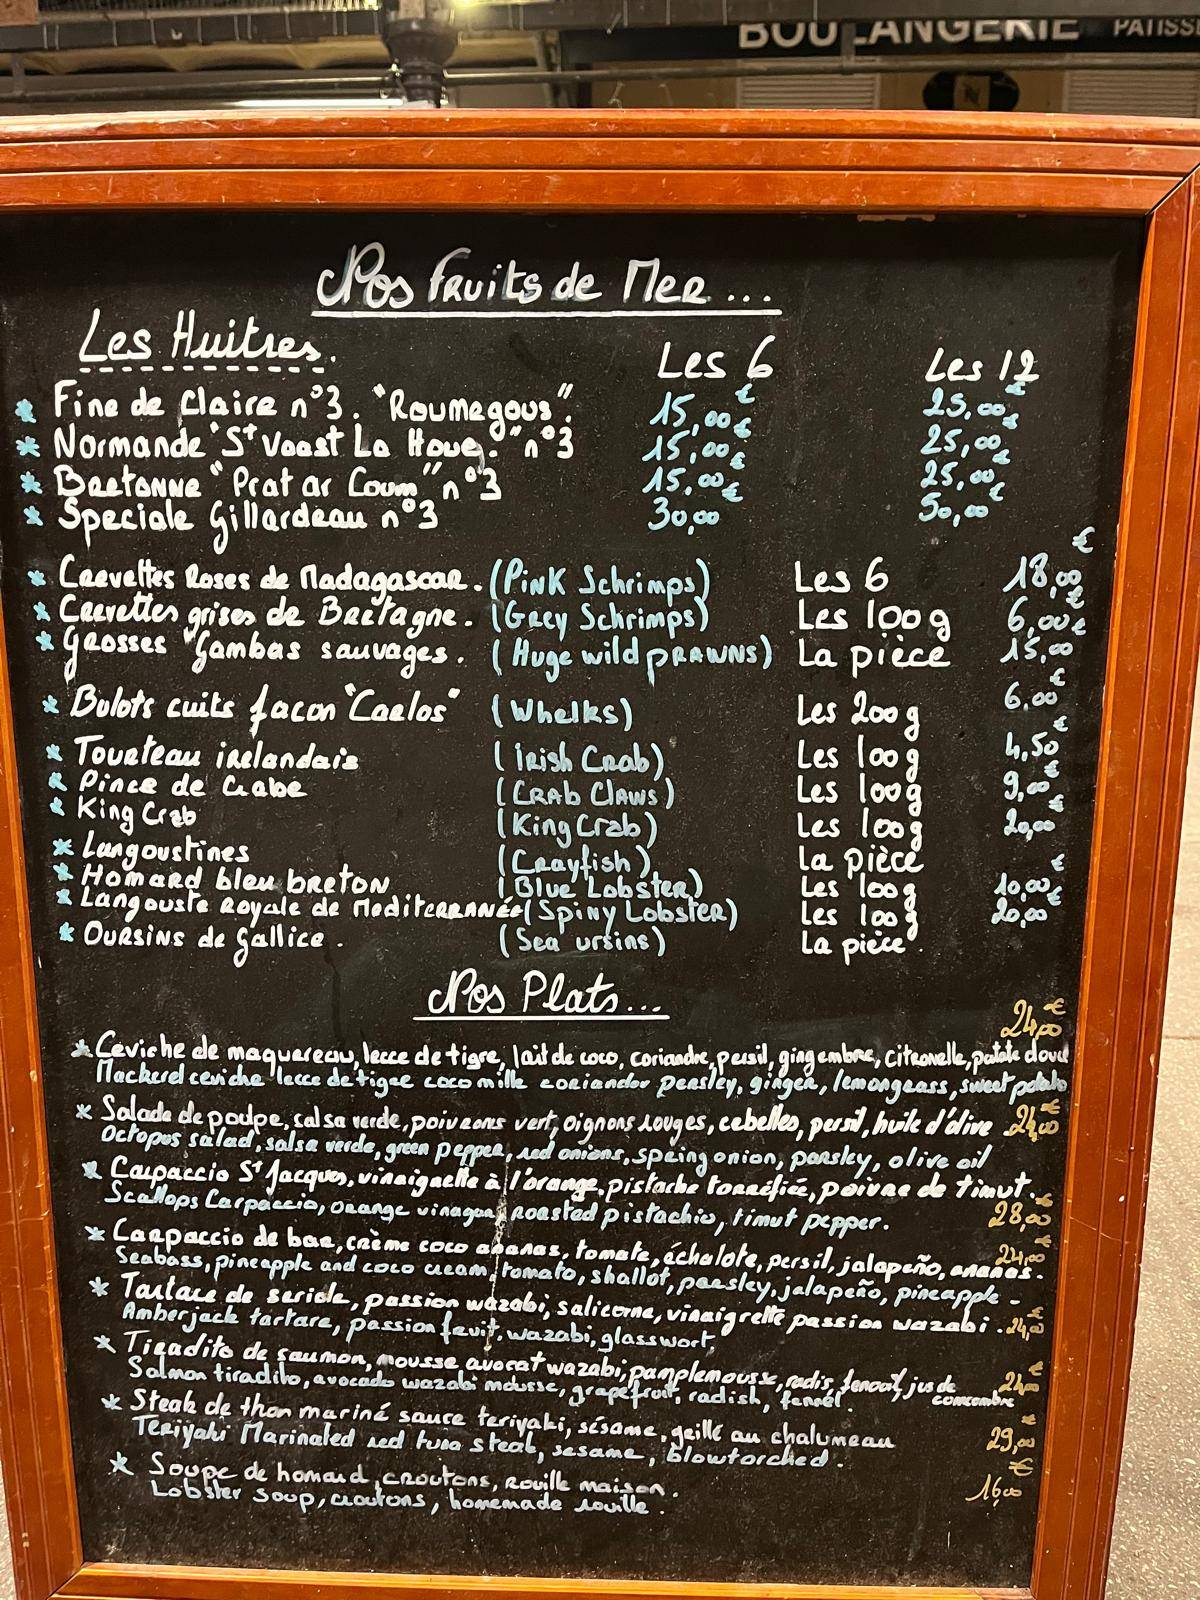 BOULANGERIE PATISS
N
Nos Fruits de Mer...
Les Huitres. Les 6 Les 12
* Fine de Claire n°3. "Roumegous". 15,00€ 25,00€
* Normande "St Vaast La Houe." n°3 15,00€ 25,00€
* Bretonne "Prat ar Coum" n°3 15,00€ 25,00€
* Speciale Gillardeau n°3 30,00€ 50,00€
* Crevettes Roses de Madagascar. (Pink Schrimps) Les 6 18,00€
* Crevettes grises de Bretagne. (Grey Schrimps) Les 100g 6,00€
* Grosses Gambas sauvages. (Huge wild prawns) La pièce 15,00€
* Bulots cuits facon "Carlos" (Whelks) Les 200g 6,00€
* Tourteau irelandais (Irish Crab) Les 100g 4,50€
* Pince de Crabe (Crab Claws) Les 100g 9,00€
* King Crab (King Crab) Les 100g 20,00€
* Langoustines (Crayfish) La pièce
* Homard bleu breton (Blue Lobster) Les 100g 10,00€
* Langouste Royale de Mediterranée (Spiny Lobster) Les 100g 20,00€
* Oursins de Gallice. (Sea ursins) La pièce.
Nos Plats...
* Ceviche de maquereau, lecce de tigre, lait de coco, coriandre, persil, gingembre, citronelle, patate douce 24,00€
Mackerel ceviche lecce de tigre coco milk coriander persley, ginger, lemongrass, sweet potato
* Salade de poulpe, salsa verde, poivrons vert, oignons rouges, cebelles, persil, huile d'olive 24,00€
Octopus salad, salsa verde, green pepper, red onions, spring onion, parsley, olive oil
* Carpaccio St Jacques, vinaigrette à l'orange, pistache torréfiée, poivre de timut. 28,00€
Scallops Carpaccio, orange vinegar, roasted pistachio, timut pepper.
* Carpaccio de bar, crème coco ananas, tomate, échalote, persil, jalapeño, ananas. 24,00€
Seabass, pineapple and coco cream, tomato, shallot, parsley, jalapeño, pineapple -
* Tartare de seriole, passion wazabi, salicorne, vinaigrette passion wazabi. 24,00€
Amberjack tartare, passion fruit, wazabi, glasswort,
* Tiradito de saumon, mousse avocat wazabi, pamplemousse, radis, fenouil, jus de concombre 24,00€
Salmon tiradito, avocado wazabi mousse, grapefruit, radish, fennel.
* Steak de thon mariné sauce teriyaki, sésame, grillé au chalumeau 29,00€
Teriyaki Marinated red tuna steak, sesame, blowtorched.
* Soupe de homard, croutons, rouille maison. 16,00€
Lobster soup, croutons, homemade rouille.